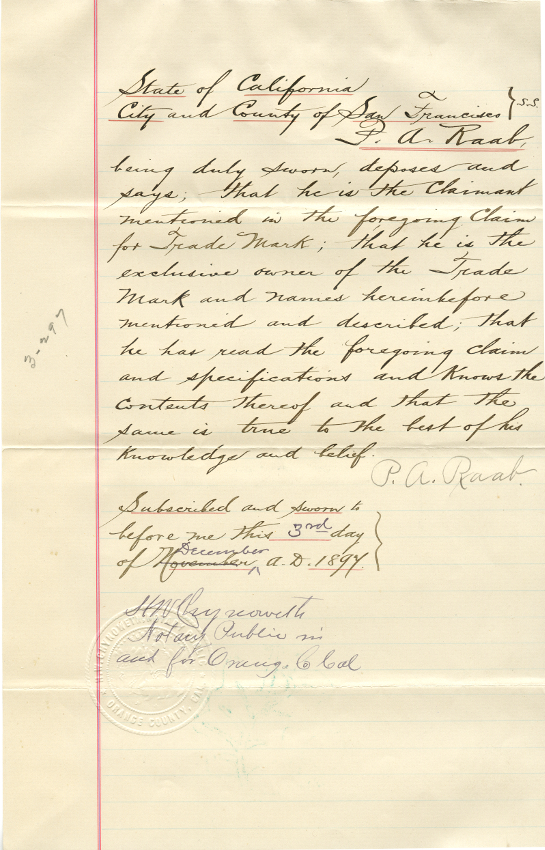 State of California
City and County of San Francisco } S.S.
P. A. Raab,
being duly sworn, deposes and
says; that he is the Claimant
mentioned in the foregoing Claim
for Trade Mark; that he is the
exclusive owner of the Trade
Mark and names hereinbefore
mentioned and described; that
he has read the foregoing claim
and specifications and Knows the
Contents thereof and that the
same is true to the best of his
Knowledge and belief.
P. A. Raab.
3-297
Subscribed and sworn to
before me this 3rd day
December
of November, A.D. 1897.
Notary Public in
and for Orange Co Cal
ORANGE COUNTY, CAL